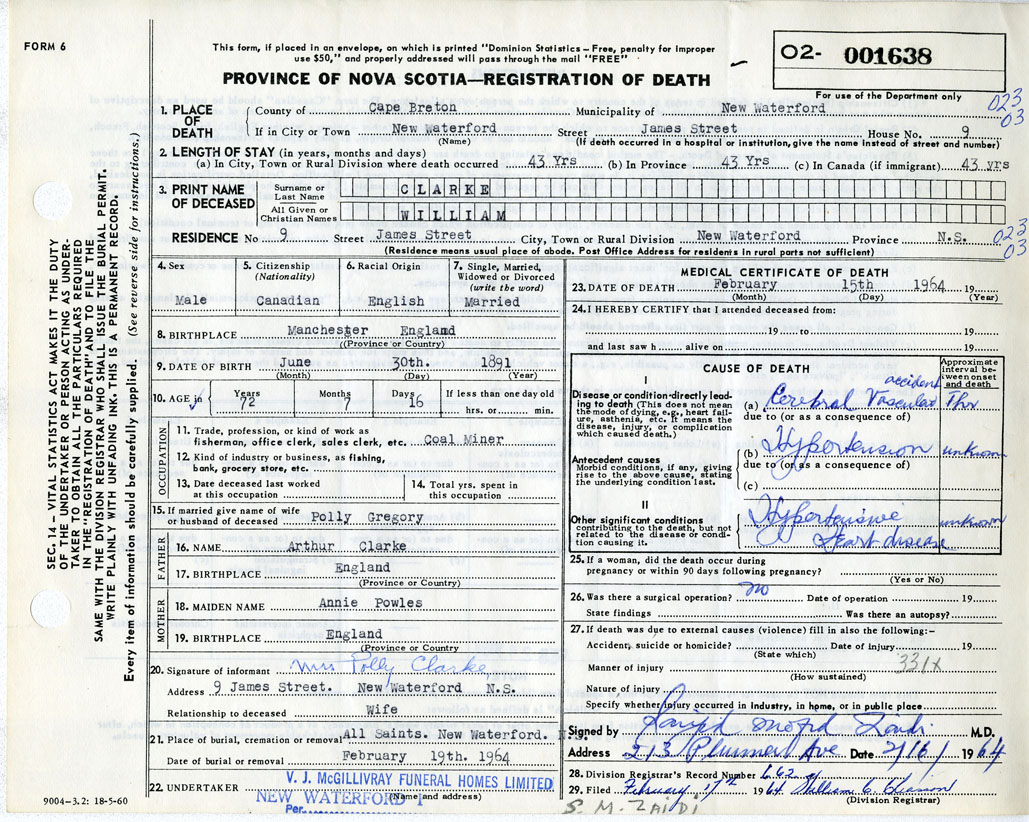 FORM 6
This form, if placed in an envelope, on which is printed "Dominion Statistics – Free, penalty for improper
use $50," and properly addressed will pass through the mail "FREE"
O2- 001638
PROVINCE OF NOVA SCOTIA—REGISTRATION OF DEATH
For use of the Department only
023
03
1. PLACE OF DEATH
County of Cape Breton Municipality of New Waterford
If in City or Town New Waterford Street James Street House No. 9
(Name) (If death occurred in a hospital or institution, give the name instead of street and number)
2. LENGTH OF STAY (in years, months and days)
(a) In City, Town or Rural Division where death occurred 43 Yrs (b) In Province 43 Yrs (c) In Canada (if immigrant) 43 yrs
3. PRINT NAME OF DECEASED
Surname or Last Name CLARKE
All Given or Christian Names WILLIAM
RESIDENCE No 9 Street James Street City, Town or Rural Division New Waterford Province N.S.
023
03
(Residence means usual place of abode. Post Office Address for residents in rural parts not sufficient)
4. Sex
Male
5. Citizenship (Nationality)
Canadian
6. Racial Origin
English
7. Single, Married, Widowed or Divorced (write the word)
Married
8. BIRTHPLACE Manchester England
((Province or Country)
9. DATE OF BIRTH June 30th. 1891
(Month) (Day) (Year)
10. AGE in Years 72 Months 7 Days 16 If less than one day old
hrs. or min.
OCCUPATION
11. Trade, profession, or kind of work as
fisherman, office clerk, sales clerk, etc. Coal Miner
12. Kind of industry or business, as fishing,
bank, grocery store, etc.
13. Date deceased last worked
at this occupation
14. Total yrs. spent in
this occupation
15. If married give name of wife
or husband of deceased Polly Gregory
FATHER
16. NAME Arthur Clarke
17. BIRTHPLACE England
(Province or Country)
MOTHER
18. MAIDEN NAME Annie Powles
19. BIRTHPLACE England
(Province or Country
20. Signature of informant Mrs Polly Clarke
Address 9 James Street. New Waterford N.S.
Relationship to deceased Wife
21. Place of burial, cremation or removal All Saints. New Waterford. N.S.
Date of burial or removal February 19th. 1964
22. UNDERTAKER V. J. McGILLIVRAY FUNERAL HOMES LIMITED
(Name and address)
NEW WATERFORD
Per
9004-3.2: 18-5-60
SEC. 14 – VITAL STATISTICS ACT MAKES IT THE DUTY
OF THE UNDERTAKER OR PERSON ACTING AS UNDER-
TAKER TO OBTAIN ALL THE PARTICULARS REQUIRED
IN THE "REGISTRATION OF DEATH" AND TO FILE THE
SAME WITH THE DIVISION REGISTRAR WHO SHALL ISSUE THE BURIAL PERMIT.
WRITE PLAINLY WITH UNFADING INK. THIS IS A PERMANENT RECORD.
Every item of information should be carefully supplied. (See reverse side for instructions.)
MEDICAL CERTIFICATE OF DEATH
23. DATE OF DEATH February 15th 1964 19
(Month) (Day) (Year)
24. I HEREBY CERTIFY that I attended deceased from:
19 to 19
and last saw h alive on 19
CAUSE OF DEATH
Approximate interval between onset and death
I
Disease or condition directly leading
to death (This does not mean
the mode of dying, e.g., heart failure,
asthenia, etc. It means the
disease, injury, or complication
which caused death.)
(a) Cerebral Vascular accident
due to (or as a consequence of)
Antecedent causes
Morbid conditions, if any, giving
rise to the above cause, stating
the underlying condition last.
(b) Hypertension unknown
due to (or as a consequence of)
(c)
II
Other significant conditions
contributing to the death, but not
related to the disease or condition
causing it.
Hypertensive unknown
Heart disease
25. If a woman, did the death occur during
pregnancy or within 90 days following pregnancy?
(Yes or No)
26. Was there a surgical operation? no Date of operation 19
State findings Was there an autopsy?
27. If death was due to external causes (violence) fill in also the following:–
Accident, suicide or homicide? Date of injury 19
(State which)
331x
Manner of injury
(How sustained)
Nature of injury
Specify whether injury occurred in Industry, in home, or in public place
Signed by Zaidi M.D.
Address 213 Plummer Ave Date 2/16/ 1964
28. Division Registrar's Record Number 662
29. Filed February 17th 1964 William C.
(Division Registrar)
S. M. ZAIDI